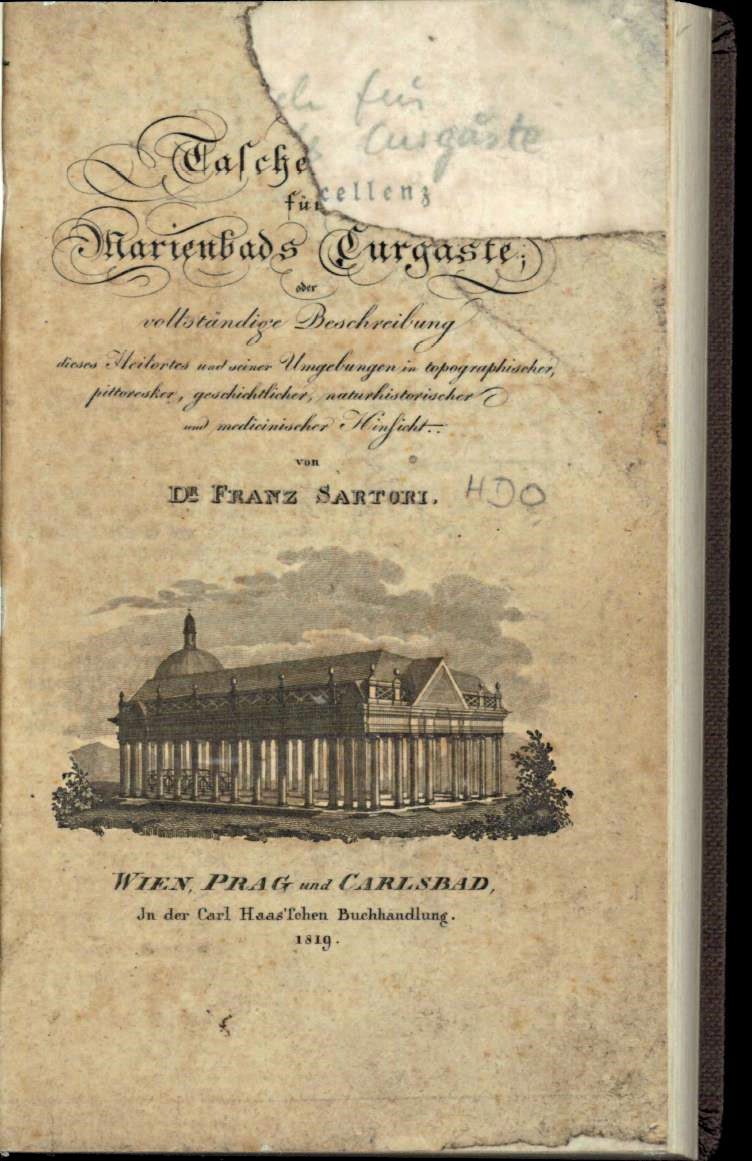 ch für
Curgäste
Tasche
cellenz
für
Marienbads Curgäste,
oder
vollständige Beschreibung
dieses Heilortes und seiner Umgebungen in topographischer,
pittoresker, geschichtlicher, naturhistorischer
und medicinischer Hinſicht.
von
DR. FRANZ SARTORI.
HDO
WIEN, PRAG und CARLSBAD,
Jn der Carl Haas'ſchen Buchhandlung.
1819.